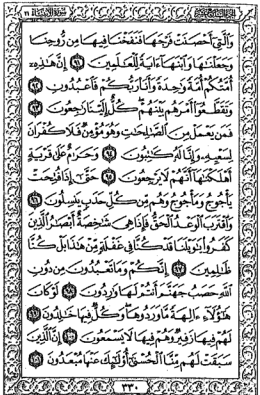 سُورَةُ الأَنبِيَاءِ ٢١
وَٱلَّتِىٓ أَحْصَنَتْ فَرْجَهَا فَنَفَخْنَا فِيهَا مِن رُّوحِنَا
وَجَعَلْنَٰهَا وَٱبْنَهَآ ءَايَةً لِّلْعَٰلَمِينَ ٩١ إِنَّ هَٰذِهِۦٓ
أُمَّتُكُمْ أُمَّةً وَٰحِدَةً وَأَنَا۠ رَبُّكُمْ فَٱعْبُدُونِ ٩٢
وَتَقَطَّعُوٓا۟ أَمْرَهُم بَيْنَهُمْ كُلٌّ إِلَيْنَا رَٰجِعُونَ ٩٣
فَمَن يَعْمَلْ مِنَ ٱلصَّٰلِحَٰتِ وَهُوَ مُؤْمِنٌ فَلَا كُفْرَانَ
لِسَعْيِهِۦ وَإِنَّا لَهُۥ كَٰتِبُونَ ٩٤ وَحَرَٰمٌ عَلَىٰ قَرْيَةٍ
أَهْلَكْنَٰهَآ أَنَّهُمْ لَا يَرْجِعُونَ ٩٥ حَتَّىٰٓ إِذَا فُتِحَتْ
يَأْجُوجُ وَمَأْجُوجُ وَهُم مِّن كُلِّ حَدَبٍ يَنسِلُونَ ٩٦
وَٱقْتَرَبَ ٱلْوَعْدُ ٱلْحَقُّ فَإِذَا هِىَ شَٰخِصَةٌ أَبْصَٰرُ ٱلَّذِينَ
كَفَرُوا۟ يَٰوَيْلَنَا قَدْ كُنَّا فِى غَفْلَةٍ مِّنْ هَٰذَا بَلْ كُنَّا
ظَٰلِمِينَ ٩٧ إِنَّكُمْ وَمَا تَعْبُدُونَ مِن دُونِ
ٱللَّهِ حَصَبُ جَهَنَّمَ أَنتُمْ لَهَا وَٰرِدُونَ ٩٨ لَوْ كَانَ
هَٰٓؤُلَآءِ ءَالِهَةً مَّا وَرَدُوهَا وَكُلٌّ فِيهَا خَٰلِدُونَ ٩٩
لَهُمْ فِيهَا زَفِيرٌ وَهُمْ فِيهَا لَا يَسْمَعُونَ ١٠٠ إِنَّ ٱلَّذِينَ
سَبَقَتْ لَهُم مِّنَّا ٱلْحُسْنَىٰٓ أُو۟لَٰٓئِكَ عَنْهَا مُبْعَدُونَ ١٠١
٣٣٠